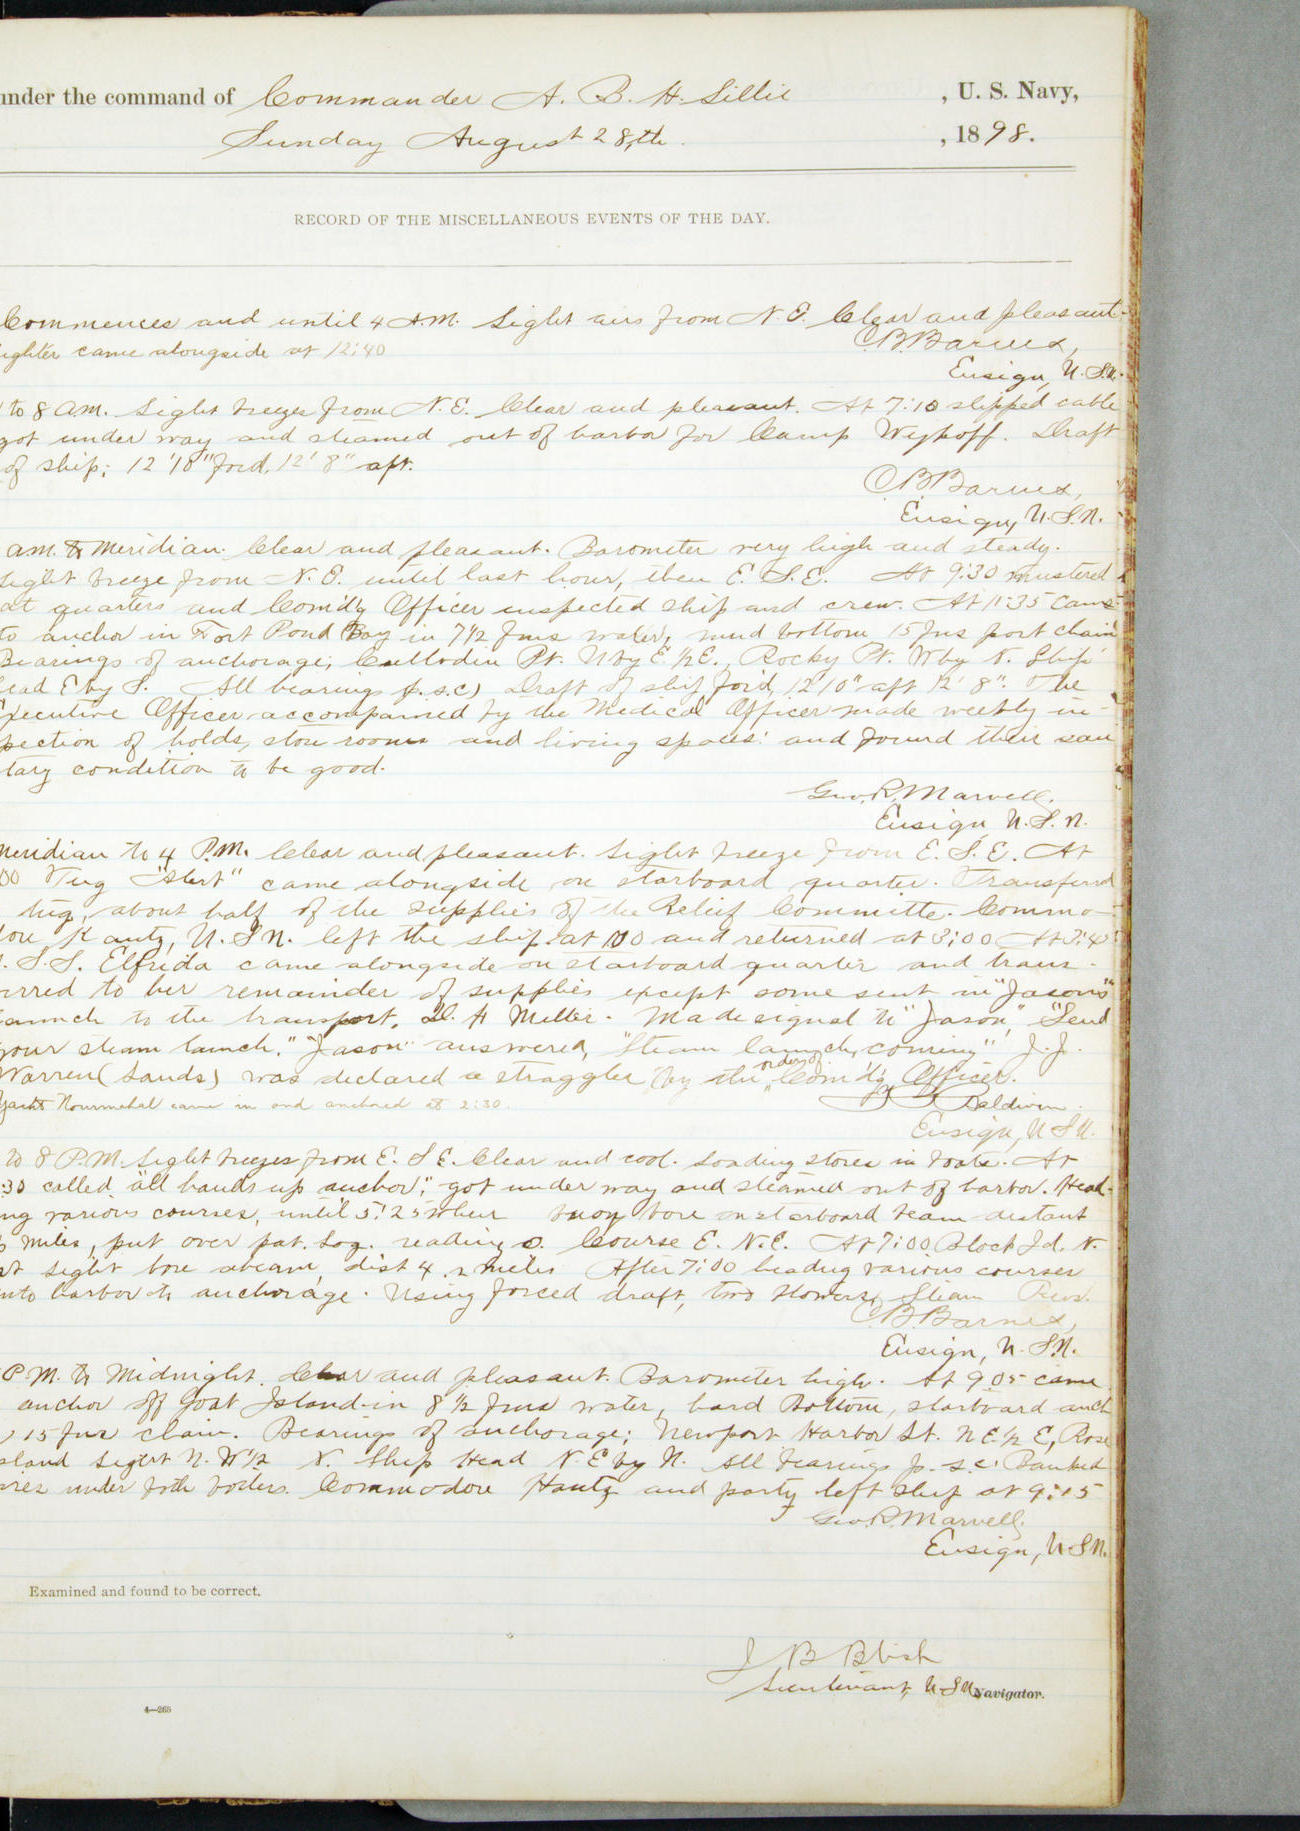 under the command of Commander A. B. H. Lillie , U. S. Navy,
Sunday August 28,th. , 1898.
RECORD OF THE MISCELLANEOUS EVENTS OF THE DAY.
Commences and until 4 A.M. Light airs from N. E. Clear and pleasant.
ighter came alongside at 12:40
C.B. Barnes,
Ensign, U. S.N.
to 8 a.m. Light breezes from N. E. Clear and pleasant. At 7:10 slipped cable
got under way and steamed out of harbor for Camp Wyhoff. Draft
of ship; 12'10" for'd. 12' 8" aft.
C.B. Barnes,
Ensign, U. S.N.
am. to Meridian. Clear and pleasant. Barometer very high and steady.
Light breeze from N. E. until last hour, then E. S. E. At 9:30 mustered
at quarters and Comd'g Officer inspected ship and crew. At 11:35 came
to anchor in Fort Pond Bay in 7 1/2 fms water, mud bottom 15 fms port chain
Bearings of anchorage; Culloden Pt. N by E. 1/2 E., Rocky Pt. W by N. Ship
ead E by S. All bearings (p.s.c) Draft of ship for'd, 12' 10" aft 12' 8". The
Executive Officer accompanied by the Medical Officer made weekly in-
pection of holds, store rooms and living spaces: and found their sani
tary condition to be good.
Geo. R. Marvell,
Ensign U. S. N.
Meridian to 4 P.M. Clear and pleasant. Light breeze from E. S. E. At
00 Tug "Alert" came alongside on starboard quarter. Transferred
tug, about half of the supplies of the Relief Committe. Commo-
dore Kautz, U. S.N. left the ship at 100 and returned at 3:00 At 3:45
. S.S. Elfrida came alongside on starboard quarter and trans-
erred to her remainder of supplies except some sent in "Jason's"
launch to the transport, D. H Miller. Made signal to "Jason", "Send
your steam launch." "Jason" answered, "Steam launch, coming" J. J.
Warren (Lands) was declared a straggler by the orders of Comd'g Officer.
Yacht Nourmahal came in and anchored at 2:30.
Baldwin
Ensign, U S N.
to 8 P.M. Light breezes from E. S E. Clear and cool. Loading stores in boats. At
:30 called "all hands up anchor," got under way and steamed out of harbor. Head-
ing various courses, until 5:25 when buoy bore on starboard beam distant
miles, put over pat. Log. reading 0. Course E. N.E. At 7:00 Block Id. N.
Light bore abeam, dist 4.2 miles After 7:00 heading various courses
into harbor to anchorage. Using forced draft, two blowers, Steam Pres.
C.B. Barnes,
Ensign, U. S.N.
P.M. to Midnight. Clear and pleasant. Barometer high. At 9.05 came
anchor off Goat Island in 8 1/2 fms water, hard bottom, starboard anch
15 fms chain. Bearings of anchorage; Newport Harbor Lt. N E 1/2 E, Rose
sland Light N. W 1/2 N. Ship Head N. E by N. All bearings p. s.c. Banked
ires under both boilers. Commodore Kautz and party left ship at 9:15
Geo. R. Marvell,
Ensign, U S N.
Examined and found to be correct.
J B Blish
Lieutenant, U.S.N. Navigator.
4—265